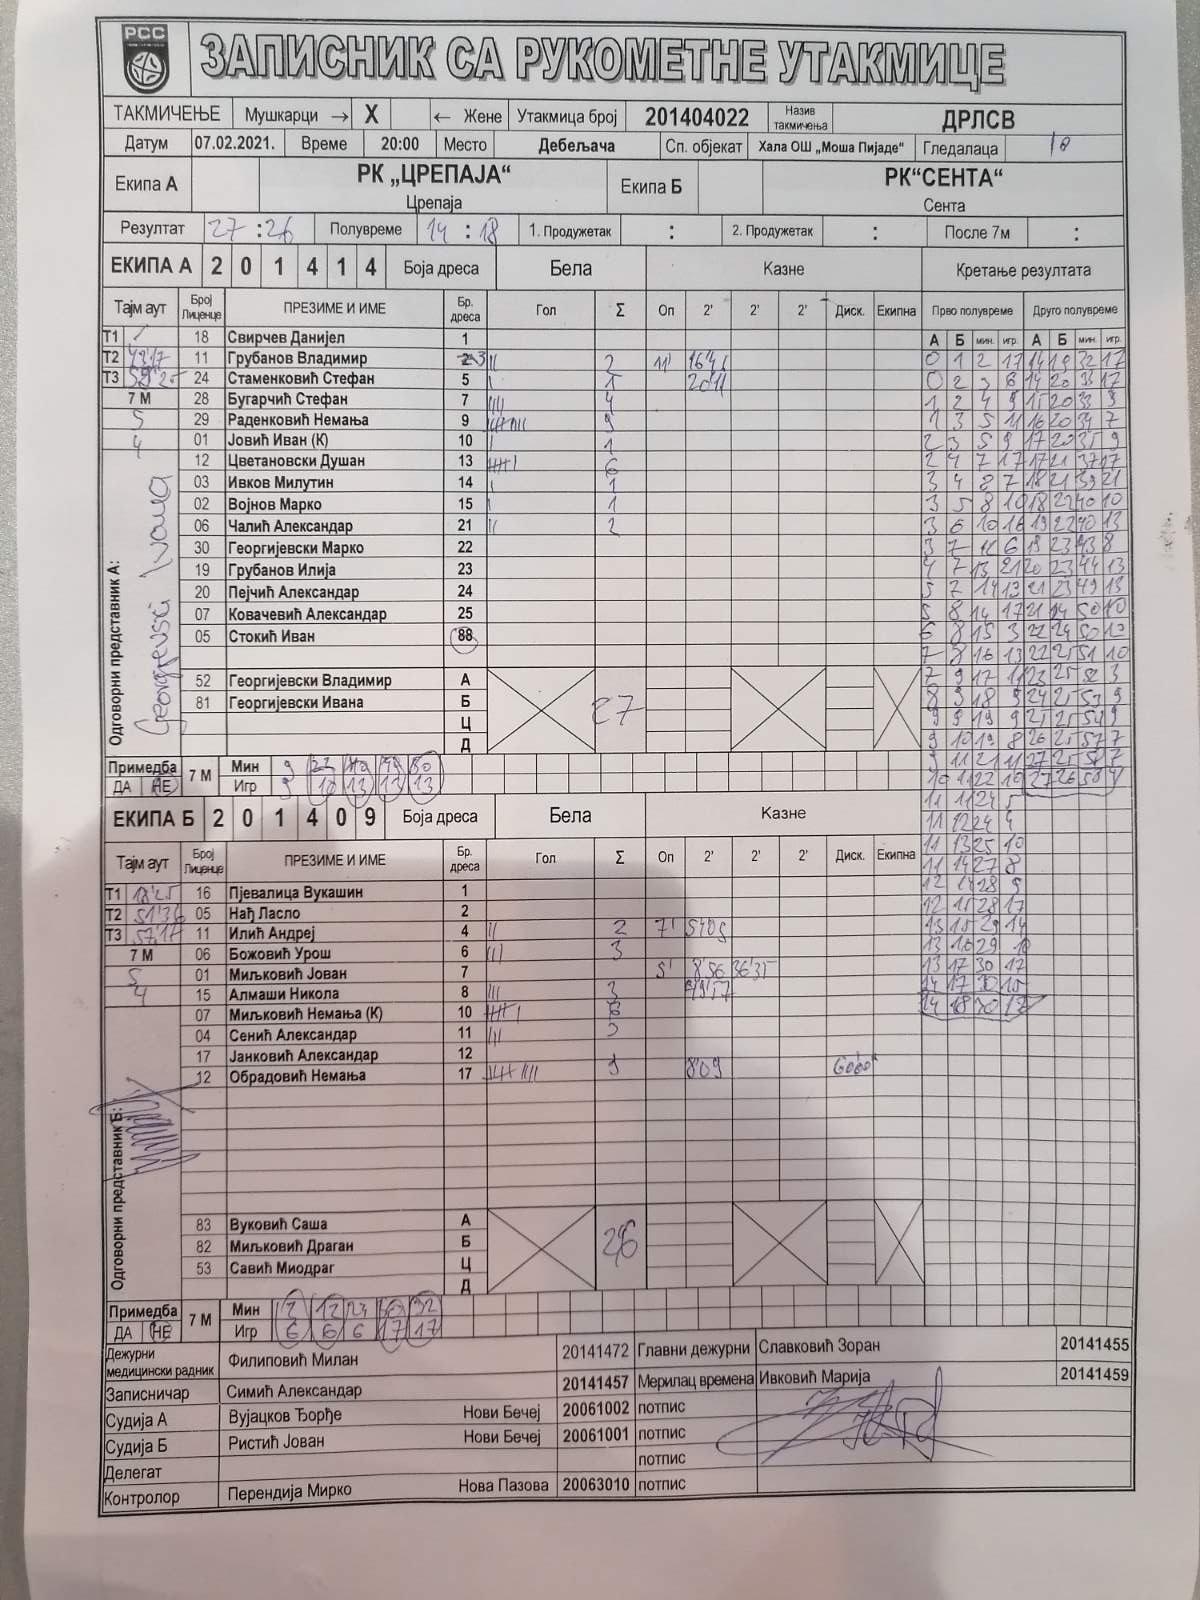 РСС
ЗАПИСНИК СА РУКОМЕТНЕ УТАКМИЦЕ
ТАКМИЧЕЊЕ Мушкарци → X ← Жене Утакмица број 201404022 Назив такмичења ДРЛСВ
Датум 07.02.2021. Време 20:00 Место Дебељача Сп. објекат Хала ОШ „Моша Пијаде“ Гледалаца
Екипа А РК „ЦРЕПАЈА“ Црепаја Екипа Б РК“СЕНТА“ Сента
Резултат 27 : 26 Полувреме 14 : 18 1. Продужетак : 2. Продужетак : После 7м :
ЕКИПА А 2 0 1 4 1 4 Боја дреса Бела Казне Кретање резултата
Тајм аут Број Лиценце ПРЕЗИМЕ И ИМЕ Бр. дреса Гол Σ Оп 2' 2' 2' Диск. Екипна Прво полувреме Друго полувреме
А Б мин. игр. А Б мин. игр.
Т1 18 Свирчев Данијел 1
Т2 11 Грубанов Владимир 3 2 11' 0 1 2 17 14 19 32 17
Т3 24 Стаменковић Стефан 5 1 14 20 33 17
7 М 28 Бугарчић Стефан 7 4 1 2 4 9 15 20 33 9
5 29 Раденковић Немања 9 9 1 3 5 11 16 20 34 7
4 01 Јовић Иван (К) 10 1 2 3 5 9 17 20 35 9
12 Цветановски Душан 13 6 2 4 7 17 17 21 37 17
03 Ивков Милутин 14 1 3 4 8 7 18 21 39 21
02 Војнов Марко 15 1 3 5 8 10 18 22 40 10
06 Чалић Александар 21 2 3 6 10 16 19 22 40 13
30 Георгијевски Марко 22 19 23 43 8
19 Грубанов Илија 23 4 7 13 21 20 23 44 13
20 Пејчић Александар 24 5 7 14 13 21 23 49 13
07 Ковачевић Александар 25 5 8 14 17 21 24 50 10
05 Стокић Иван 88 6 8 15 3 22 24 50 13
7 8 16 13 22 25 51 10
52 Георгијевски Владимир А 7 9 17 11 23 25 52 3
81 Георгијевски Ивана Б 27 8 9 18 9 24 25 53 9
Ц 9 9 19 9 25 25 54 9
Д 9 10 19 8 26 25 57 7
Одговорни представник А:
Примедба ДА НЕ 7 М Мин 9
Игр 9 10 13 13 13
9 11 21 11 27 25 58 7
10 11 22 10 27 26 58 4
ЕКИПА Б 2 0 1 4 0 9 Боја дреса Бела Казне
11 11 24 5
11 12 24 4
11 13 25 10
11 14 27 8
Тајм аут Број Лиценце ПРЕЗИМЕ И ИМЕ Бр. дреса Гол Σ Оп 2' 2' 2' Диск. Екипна
Т1 18'25 16 Пјевалица Вукашин 1 12 14 28 9
Т2 51'36 05 Нађ Ласло 2 12 15 28 17
Т3 57'17 11 Илић Андреј 4 2 7' 5409 13 15 29 14
7 М 06 Божовић Урош 6 3 13 16 29 10
5 01 Миљковић Јован 7 5' 8'56 36'35 13 17 30 17
4 15 Алмаши Никола 8 3 14 17 30 15
07 Миљковић Немања (К) 10 6 14 18 30 17
04 Сенић Александар 11 3
17 Јанковић Александар 12
12 Обрадовић Немања 17 9 8'09 60'00"
Одговорни представник Б:
83 Вуковић Саша А
82 Миљковић Драган Б 26
53 Савић Миодраг Ц
Д
Примедба ДА НЕ 7 М Мин 2 12 23 30 32
Игр 6 6 6 17 17
Дежурни медицински радник Филиповић Милан 20141472 Главни дежурни Славковић Зоран 20141455
Записничар Симић Александар 20141457 Мерилац времена Ивковић Марија 20141459
Судија А Вујацков Ђорђе Нови Бечеј 20061002 потпис
Судија Б Ристић Јован Нови Бечеј 20061001 потпис
Делегат потпис
Контролор Перендија Мирко Нова Пазова 20063010 потпис